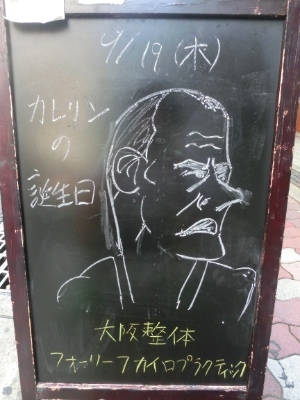 9/19(木)
カレリン
の
誕生日
大阪整体
フォーリーフカイロプラクティック